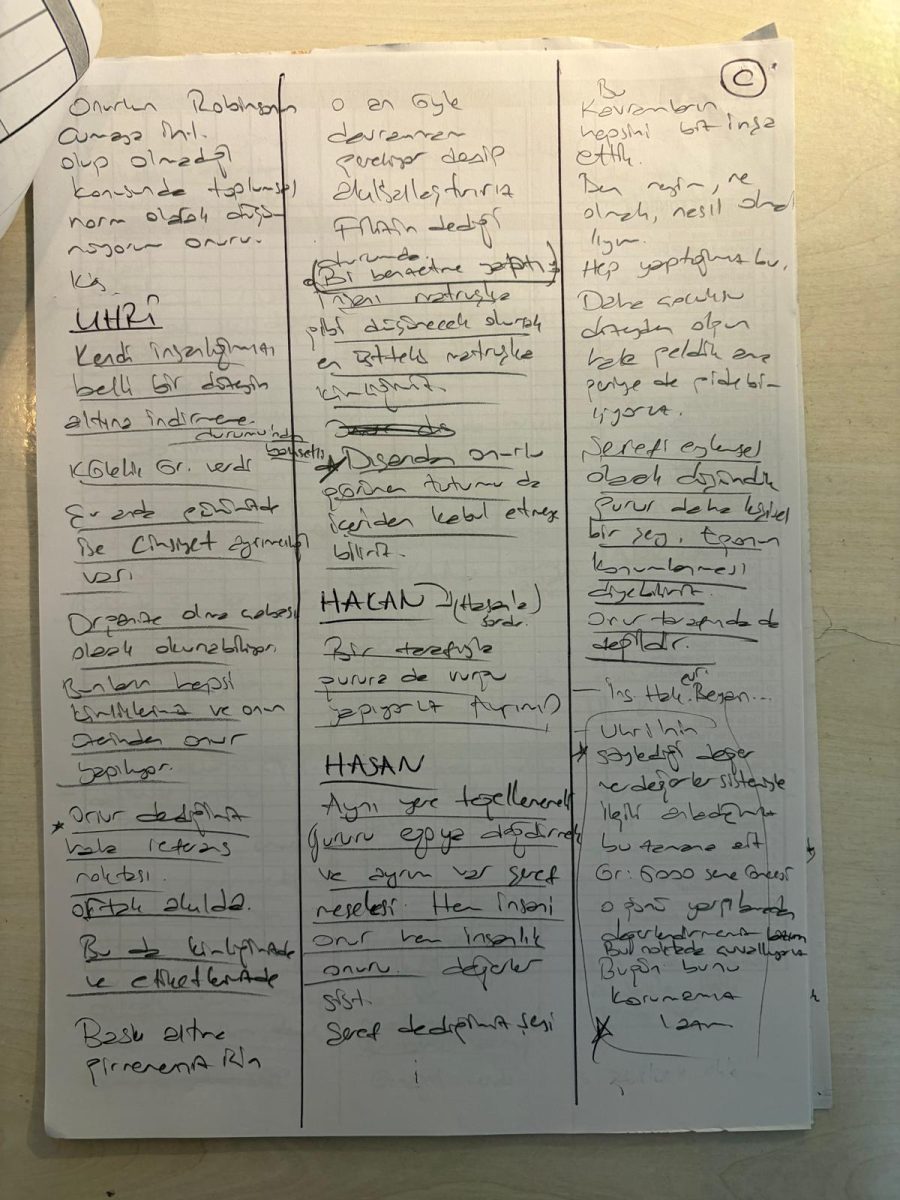 Onurlun Robinsonun
Cumaya iht.
olup olmadığı
konusunda toplumsal
norm olarak düşü-
nüyorum onuru.
UHRİ
Kendi insanlığımızı
belli bir düzeyin
altına indirmeme
durumundan
bahsetti
Kölelik ör. verdi
Şu anda günümüzde
ise cinsiyet ayrımcılığı
var.
Organize olma çabası
olarak okunabiliyor.
Bunların hepsi
kimliklerimiz ve onun
üzerinden onur
yapılıyor.
Onur dediğimiz
hala referans
noktası.
ortak akılda.
Bu da kimliğimizde
ve etiketlerimizde
Baskı altına
girmememiz için
O an öyle
davranmam
gerekiyor deyip
akılsallaştırırız
Filizin dediği
durumda.
Bi benzetme yaptı
yani matruşka
gibi düşünecek olursak
en üstteki matruşka
kimliğimiz.
Dışarıdan onurlu
görünen tutumu da
içeriden kabul etmeye
biliriz.
HAKAN (Hasan'a)
sordu.
Bir tarafıyla
gurura da vurgu
yapıyoruz Ayrımı?
HASAN
Aynı yere tepellenerek
Gururu egoya değdirmek
ve ayrım var şeref
meselesi. Hem insani
onur hem insanlık
onuru. değerler
sist.
Şeref dediğimiz şeyi
C
Bu
Kavramların
hepsini biz inşa
ettik.
Ben neyim, ne
olmak, nasıl olma
lıyım.
Hep yaptığımız bu.
Daha çocuksu
düzeyden olgun
hale geldik ama
geriye de gidebi-
liyoruz.
Şerefi eylemsel
olarak düşündük
gurur daha kişisel
bir şey, egonun
konumlanması
diyebiliriz.
Onur tarafında da
değildir.
— İns. Hak. evr. Beyan...
- Uhri'nin
söylediği değer
ve değerler sistemiyle
ilgili anladığımız
bu zamana ait
Ör: 5000 sene öncesi
o günü yargılamadan
değerlendirmemiz lazım
Bu noktada çuvallıyoruz
Bugün bunu
korumamız
lazım